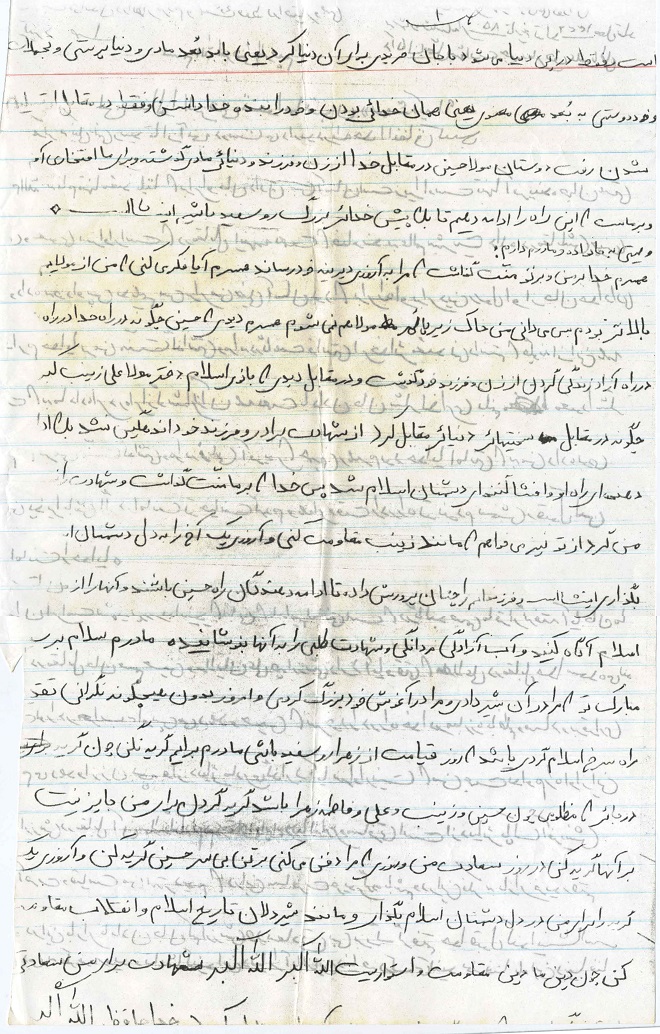 است و فقط در این دنیا می‌شود با جان خریدی برای آن دنیا کرد یعنی باید بُعد مادی و دنیاپرستی و تجملات
و خوددوستی به بُعد معنوی یعنی همان خدائی بودن و خود را بنده خدا دانستن و فقط در مقابل الله تسلیم
شدن رفت دوستان مولا حسین در مقابل خدا از زن و فرزند و دنیائی مادی گذشته و برای ما افتخاری آور
و بر ماست که این راه را ادامه دهیم تا بلکه پیش خدائی بزرگ روسفید باشیم انشاالله
وصیتی به خانواده و مادرم دارم:
همسرم خدا بر من و بر تو منت گذاشت که مرا به آرزوی دیرینه خود رساند همسرم آیا فکر می‌کنی که من از مولایم
بالاتر بودم می‌دانی من خاک زیر پای مولا هم نمی‌شوم همسرم دیدی که حسین چگونه در راه خدا در راه
در راه آزاد زندگی کردن از زن و فرزند خود گذشت و در مقابل دیدی که بانوی اسلام دختر مولا علی زینب کبری
چگونه در مقابل سختیهائی دنیائی مقابل کرد از شهادت برادر و فرزند خود اندوهگین نشد بلکه ادامه
دهنده‌ای راه او و افشا کننده‌ای دشمنان اسلام شد پس خدا که بر ما منت گذاشت و شهادت را
من کرد از تو نیز می‌خواهم که مانند زینب مقاومت کنی و آرزوی یک آخ را به دل دشمنان
بگذاری انشاالله و فرزندانم را چنان پرورش داده تا ادامه دهندگان راه حسین باشند و آنها را از
اسلام آگاه کنید و آب آزادگی مردانگی و شهادت طلبی را به آنها نوشانیده مادرم سلام بر
مبارک تو که مرا در آن شیر دادی و مرا در آغوش خود بزرگ کردی و امروز بدون هیچگونه نگرانی تقدیم
راه سرخ اسلام کردی باشد که روز قیامت از زهرا روسفید باشی مادرم برایم گریه نکن چون گریه
در جائی که مظلومی چون حسین و زینب و علی و فاطمه زهرا باشد گریه کردن برای من جایز نیست
بر آنها گریه کن در روز سعادت من و روزی که مرا دفن می‌کنی بر تن بی‌سر حسین گریه کن و آرزوی یک
گریه را برای من در دل دشمنان اسلام بگذار و مانند شیردلان تاریخ اسلام و انقلاب مقاومت
کن چون دین ما دین مقاومت و استواریست الله اکبر الله اکبر شهادت برای من سعادت
خداحافظ الله اکبر